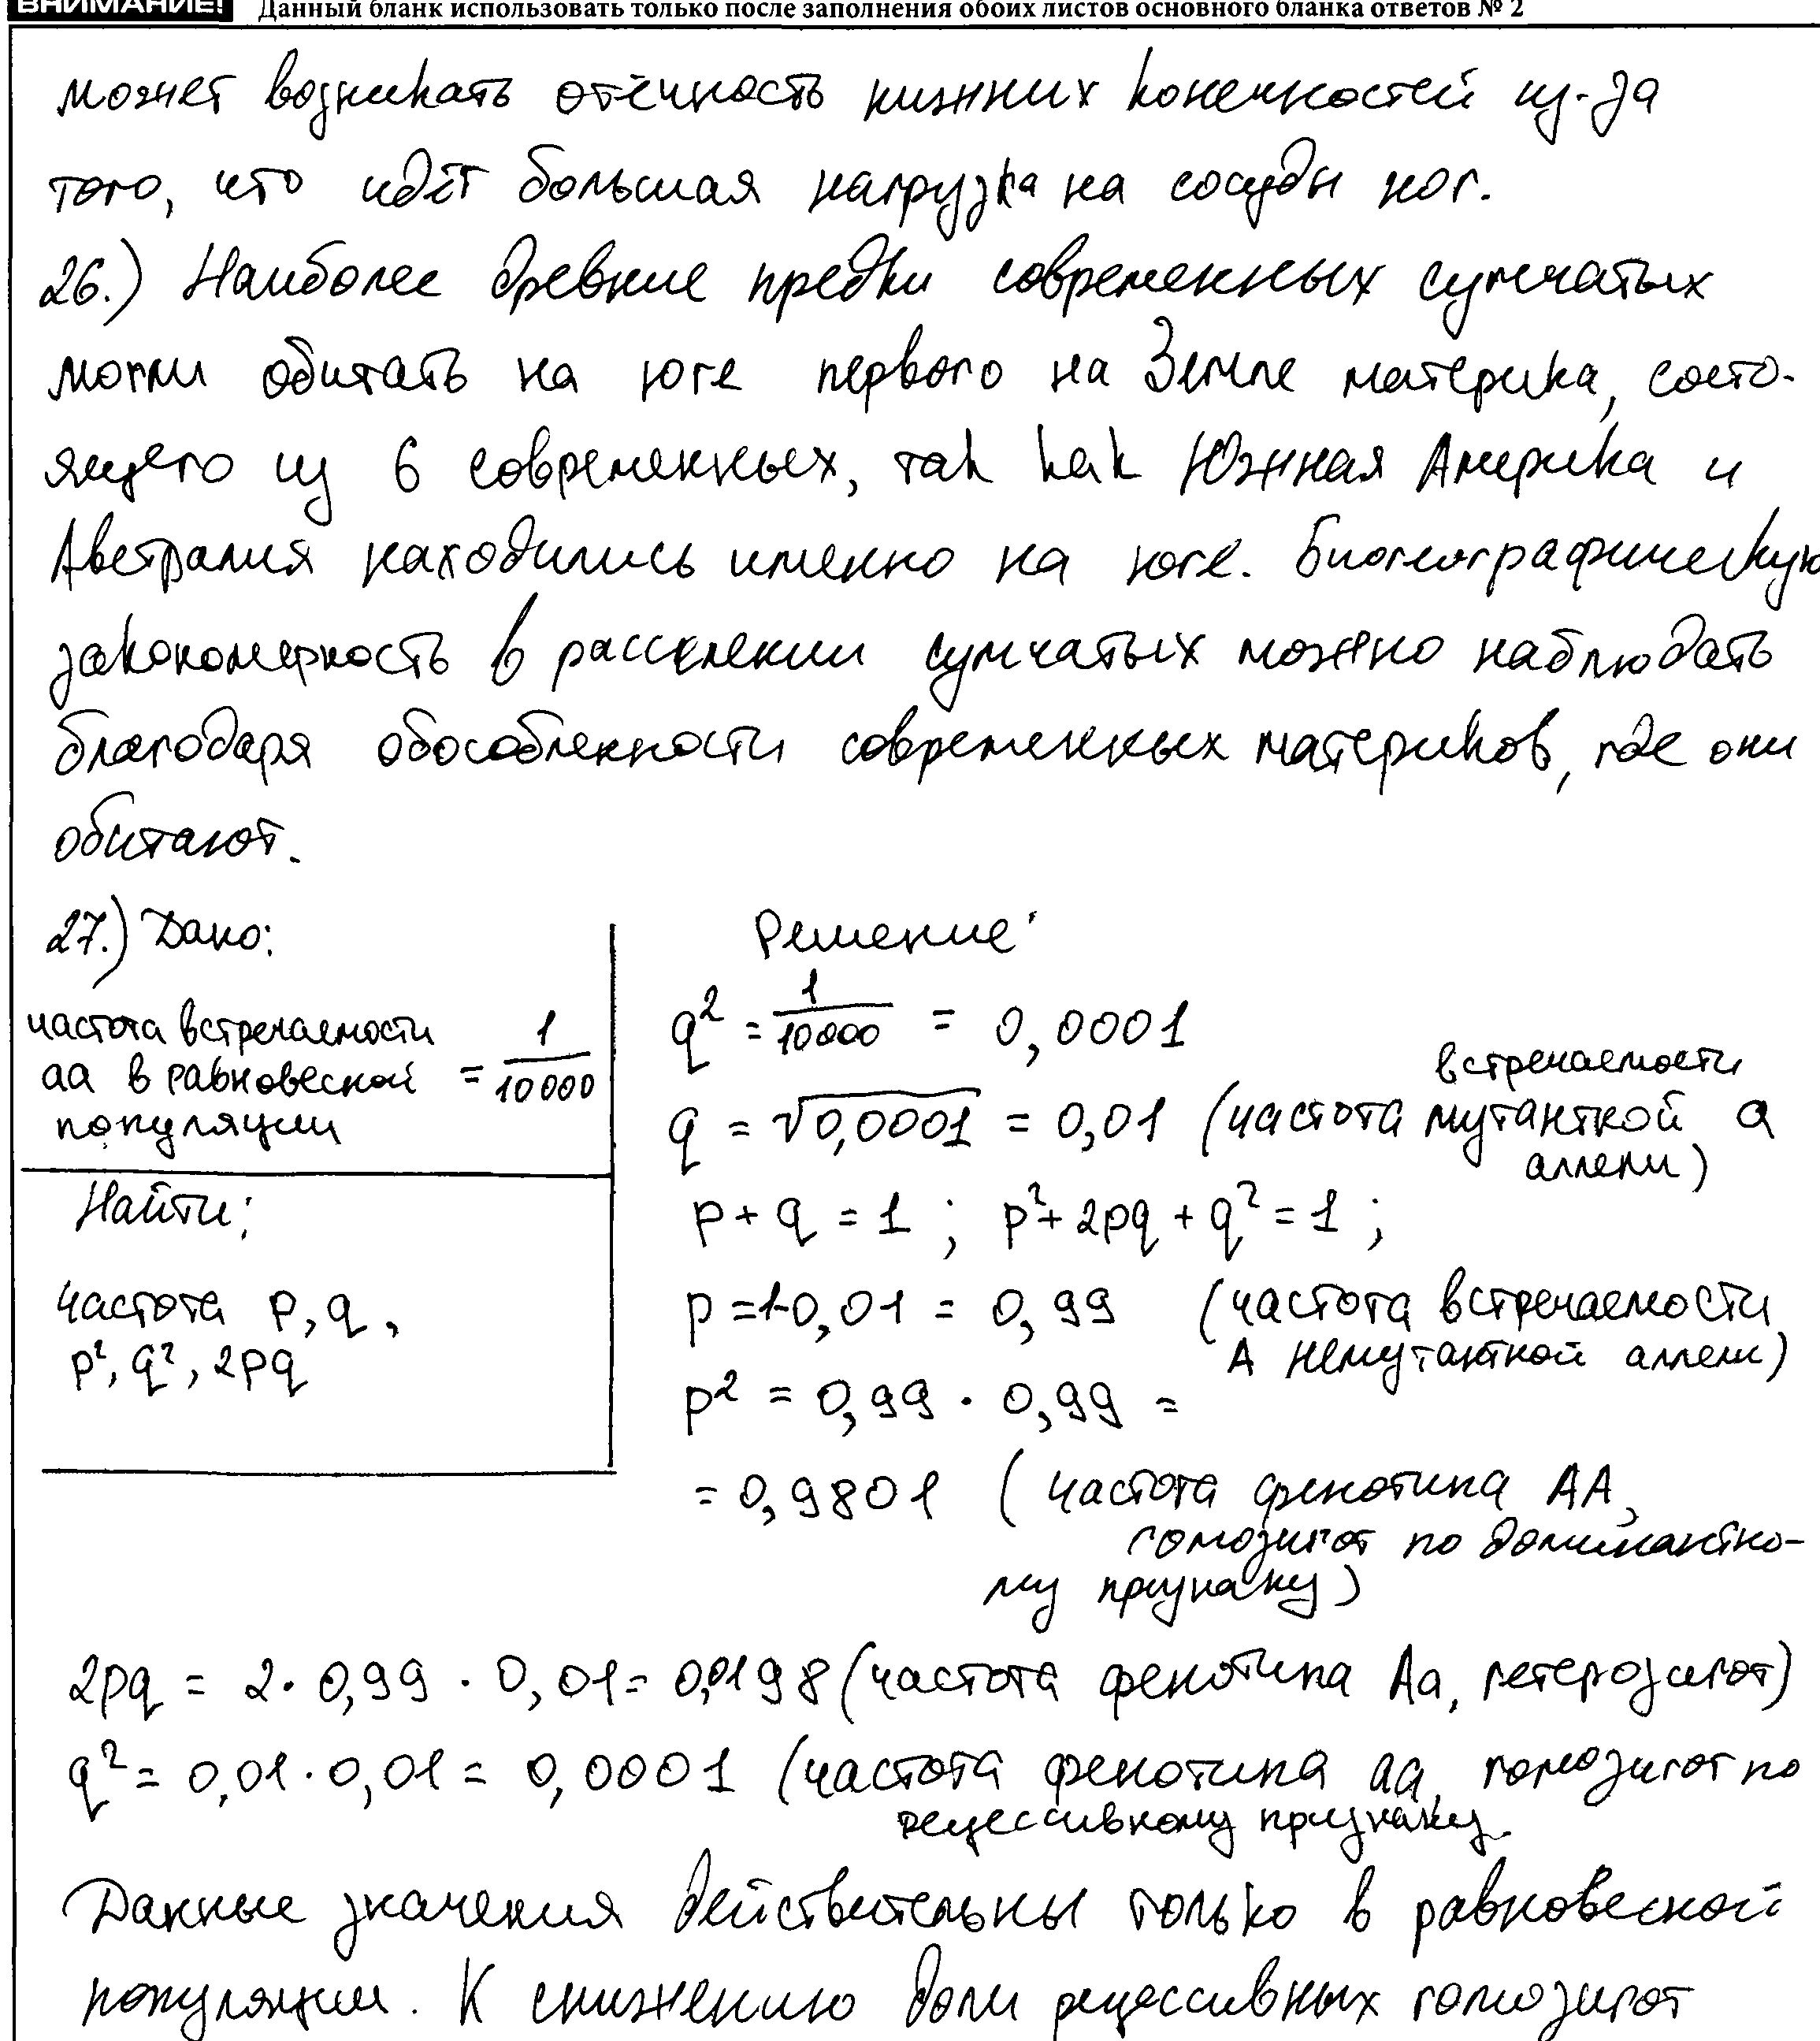 ВНИМАНИЕ! Данный бланк использовать только после заполнения обоих листов основного бланка ответов № 2
может возникать отёчность нижних конечностей из-за
того, что идёт большая нагрузка на сосуды ног.
26.) Наиболее древние предки современных сумчатых
могли обитать на юге первого на Земле материка, состо-
ящего из 6 современных, так как Южная Америка и
Австралия находились именно на юге. Биогеографическую
закономерность в расселении сумчатых можно наблюдать
благодаря обособленности современных материков, где они
обитают.
27.) Дано:
частота встречаемости
аа в равновесной = 1/10000
популяции
Найти:
частота p, q,
p², q², 2pq
Решение:
q² = 1/10000 = 0,0001
q = √0,0001 = 0,01 (частота встречаемости мутантной а
аллели)
p + q = 1 ; p² + 2pq + q² = 1 ;
p = 1-0,01 = 0,99 (частота встречаемости
А немутантной аллели)
p² = 0,99 · 0,99 =
= 0,9801 (частота фенотипа АА,
гомозигот по доминантно-
му признаку)
2pq = 2 · 0,99 · 0,01 = 0,0198 (частота фенотипа Аа, гетерозигот)
q² = 0,01 · 0,01 = 0,0001 (частота фенотипа аа, гомозигот по
рецессивному признаку.
Данные значения действительны только в равновесной
популяции. К снижению доли рецессивных гомозигот